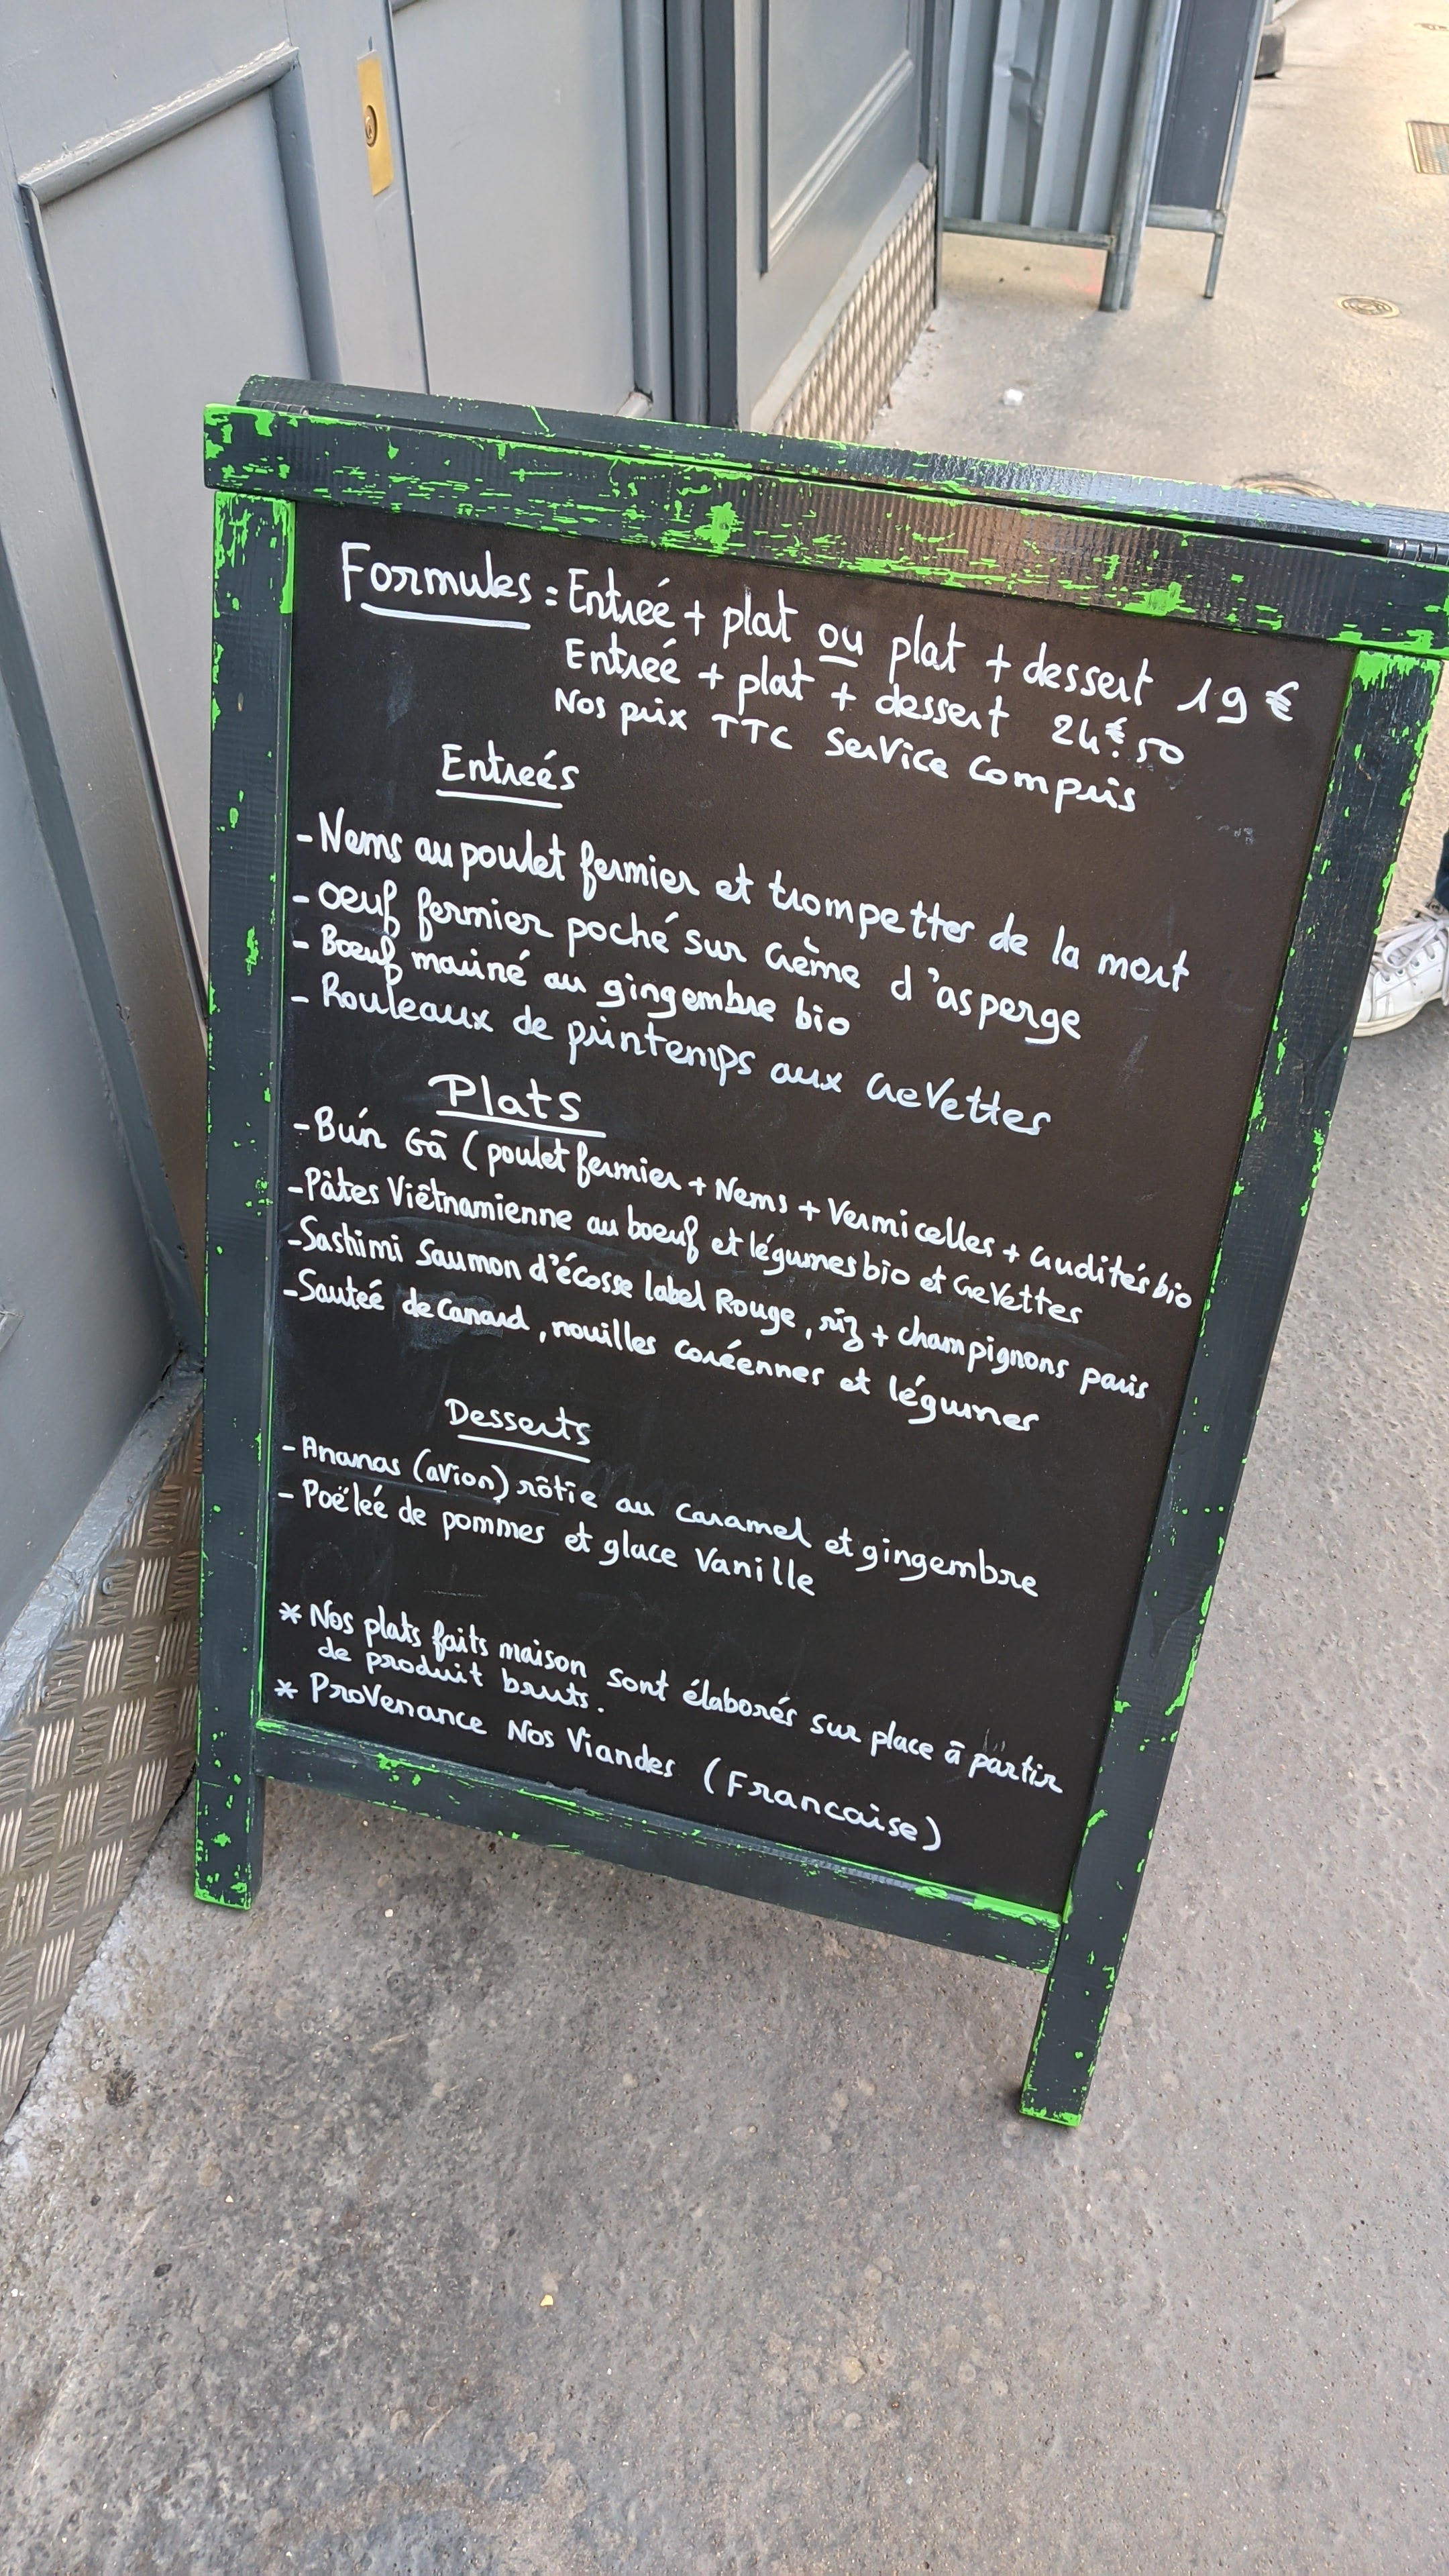 Formules = Entreé + plat ou plat + dessert 19 €
Entreé + plat + dessert 24€50
Nos prix TTC Service Compris
Entreés
- Nems au poulet fermier et trompettes de la mort
- oeuf fermier poché sur crème d'asperge
- Boeuf mariné au gingembre bio
- Rouleaux de printemps aux creVettes
Plats
- Bún Gā (poulet fermier + Nems + Vermicelles + crudités bio
- Pâtes Viêtnamienne au boeuf et légumes bio et creVettes
- Sashimi Saumon d'écosse label Rouge, riz + champignons paris
- Sauteé de Canard, nouilles coréennes et légumes
Desserts
- Ananas (avion) rôtie au caramel et gingembre
- Poëleé de pommes et glace Vanille
* Nos plats faits maison sont élaborés sur place ā partir
de produit bruts.
* ProVenance Nos Viandes (Francaise)